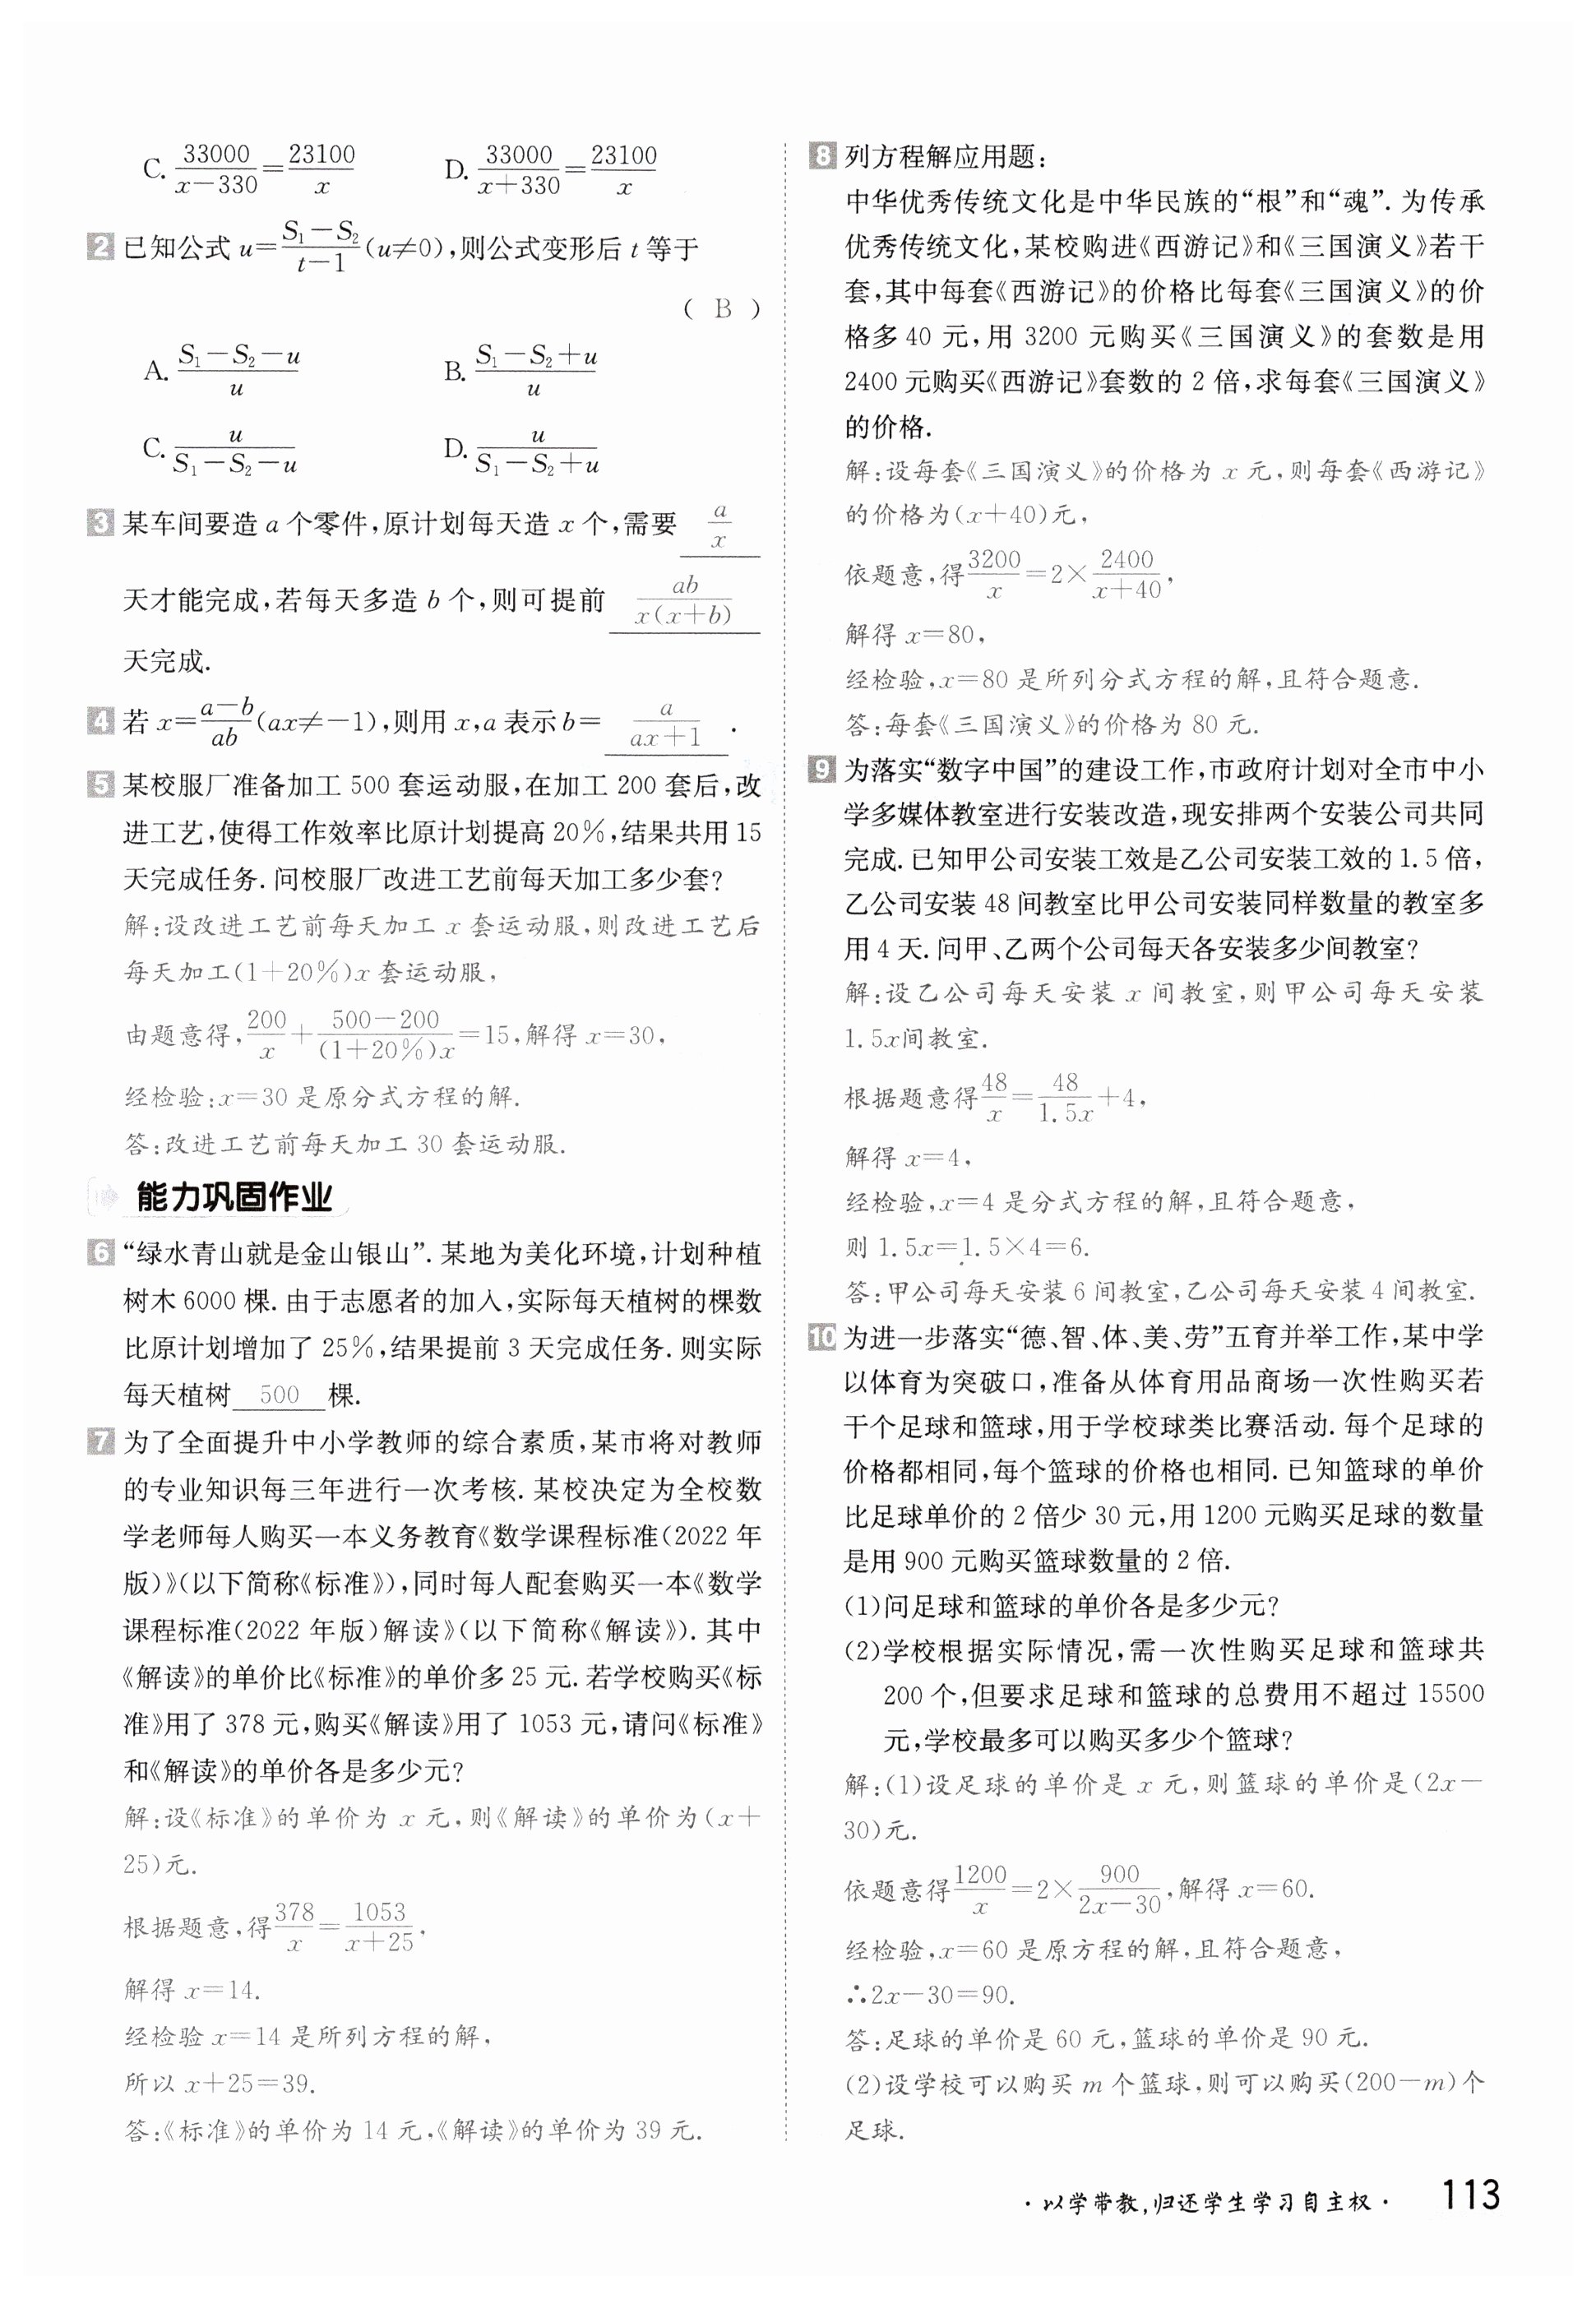 C. \frac{33000}{x-330}=\frac{23100}{x} D. \frac{33000}{x+330}=\frac{23100}{x}
2 已知公式 u=\frac{S₁-S₂}{t-1}(u≠0),则公式变形后 t 等于
( B )
A. \frac{S₁-S₂-u}{u} B. \frac{S₁-S₂+u}{u}
C. \frac{u}{S₁-S₂-u} D. \frac{u}{S₁-S₂+u}
3 某车间要造 a 个零件,原计划每天造 x 个,需要 \frac{a}{x}
天才能完成,若每天多造 b 个,则可提前 \frac{ab}{x(x+b)}
天完成.
4 若 x=\frac{a-b}{ab}(ax≠-1),则用 x,a 表示 b= \frac{a}{ax+1} .
5 某校服厂准备加工 500 套运动服,在加工 200 套后,改
进工艺,使得工作效率比原计划提高 20%,结果共用 15
天完成任务. 问校服厂改进工艺前每天加工多少套?
解:设改进工艺前每天加工 x 套运动服,则改进工艺后
每天加工(1+20%)x 套运动服,
由题意得,\frac{200}{x}+\frac{500-200}{(1+20%)x}=15,解得 x=30,
经检验:x=30 是原分式方程的解.
答:改进工艺前每天加工 30 套运动服.
能力巩固作业
6 “绿水青山就是金山银山”. 某地为美化环境,计划种植
树木 6000 棵. 由于志愿者的加入,实际每天植树的棵数
比原计划增加了 25%,结果提前 3 天完成任务. 则实际
每天植树 500 棵.
7 为了全面提升中小学教师的综合素质,某市将对教师
的专业知识每三年进行一次考核. 某校决定为全校数
学老师每人购买一本义务教育《数学课程标准(2022 年
版)》(以下简称《标准》),同时每人配套购买一本《数学
课程标准(2022 年版)解读》(以下简称《解读》). 其中
《解读》的单价比《标准》的单价多 25 元. 若学校购买《标
准》用了 378 元,购买《解读》用了 1053 元,请问《标准》
和《解读》的单价各是多少元?
解:设《标准》的单价为 x 元,则《解读》的单价为(x+
25)元.
根据题意,得\frac{378}{x}=\frac{1053}{x+25},
解得 x=14.
经检验 x=14 是所列方程的解,
所以 x+25=39.
答:《标准》的单价为 14 元,《解读》的单价为 39 元.
8 列方程解应用题:
中华优秀传统文化是中华民族的“根”和“魂”. 为传承
优秀传统文化,某校购进《西游记》和《三国演义》若干
套,其中每套《西游记》的价格比每套《三国演义》的价
格多 40 元,用 3200 元购买《三国演义》的套数是用
2400 元购买《西游记》套数的 2 倍,求每套《三国演义》
的价格.
解:设每套《三国演义》的价格为 x 元,则每套《西游记》
的价格为(x+40)元,
依题意,得\frac{3200}{x}=2×\frac{2400}{x+40},
解得 x=80,
经检验,x=80 是所列分式方程的解,且符合题意.
答:每套《三国演义》的价格为 80 元.
9 为落实“数字中国”的建设工作,市政府计划对全市中小
学多媒体教室进行安装改造,现安排两个安装公司共同
完成. 已知甲公司安装工效是乙公司安装工效的 1.5 倍,
乙公司安装 48 间教室比甲公司安装同样数量的教室多
用 4 天. 问甲、乙两个公司每天各安装多少间教室?
解:设乙公司每天安装 x 间教室,则甲公司每天安装
1.5x间教室.
根据题意得\frac{48}{x}=\frac{48}{1.5x}+4,
解得 x=4,
经检验,x=4 是分式方程的解,且符合题意,
则 1.5x=1.5×4=6.
答:甲公司每天安装 6 间教室,乙公司每天安装 4 间教室.
10 为进一步落实“德、智、体、美、劳”五育并举工作,某中学
以体育为突破口,准备从体育用品商场一次性购买若
干个足球和篮球,用于学校球类比赛活动. 每个足球的
价格都相同,每个篮球的价格也相同. 已知篮球的单价
比足球单价的 2 倍少 30 元,用 1200 元购买足球的数量
是用 900 元购买篮球数量的 2 倍.
(1)问足球和篮球的单价各是多少元?
(2)学校根据实际情况,需一次性购买足球和篮球共
200 个,但要求足球和篮球的总费用不超过 15500
元,学校最多可以购买多少个篮球?
解:(1)设足球的单价是 x 元,则篮球的单价是(2x-
30)元.
依题意得\frac{1200}{x}=2×\frac{900}{2x-30},解得 x=60.
经检验,x=60 是原方程的解,且符合题意,
∴2x-30=90.
答:足球的单价是 60 元,篮球的单价是 90 元.
(2)设学校可以购买 m 个篮球,则可以购买(200-m)个
足球.
· 以学带教,归还学生学习自主权 · 113